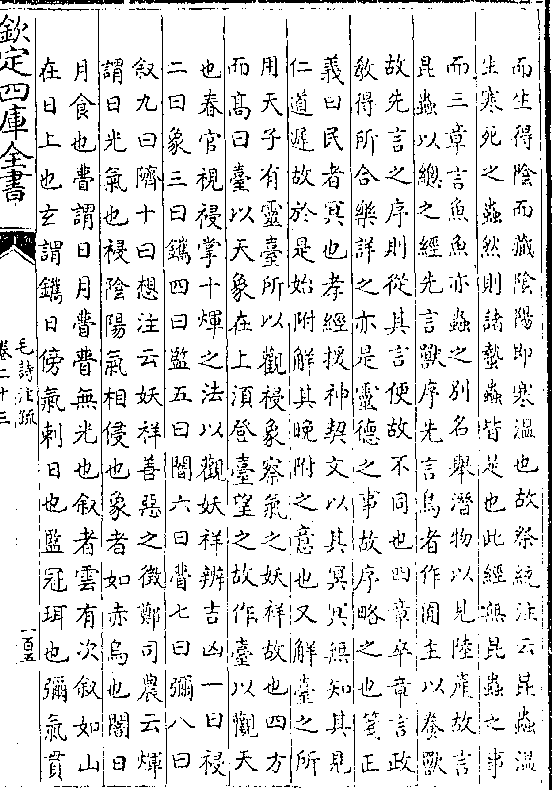 而生得陰而藏陰陽即寒溫也故祭統注云昆蟲溫
生寒死之蟲然則諸蟄蟲皆是也此經無昆蟲之事
而三章言魚魚亦蟲之別名舉潛物以見陸產故言
昆蟲以總之經先言獸序先言鳥者作囿主以養獸
故先言之序則從其言便故不同也四章卒章言政
敎得所合樂詳之亦是靈德之事故序略之也箋正
義曰民者冥也孝經援神契文以其冥冥無知其見
仁道遲故於是始附解其晚附之意也又解臺之所
用天子有靈臺所以觀祲象察氣之妖祥故也四方
而高曰臺以天象在上須登臺望之故作臺以觀天
也春官視祲掌十煇之法以觀妖祥辨吉凶一曰祲
二曰象三曰鑴四曰監五曰闇六曰瞢七曰彌八曰
叙九曰隮十曰想注云妖祥善惡之徵鄭司農云煇
謂日光氣也祲陰陽氣相侵也象者如赤烏也闇日
月食也瞢謂日月瞢瞢無光也叙者雲有次叙如山
在日上也玄謂鑴日傍氣刺日也監冠珥也彌氣貫
欽定四庫全書
毛詩注疏
卷二十三
一百五